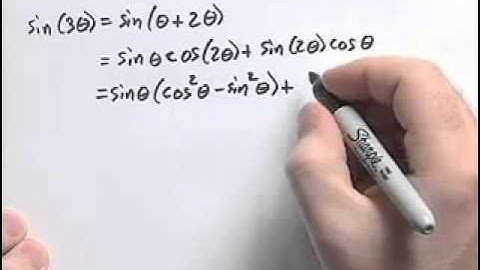 sin(3θ) = sin(θ + 2θ)
= sin θ cos(2θ) + sin(2θ) cos θ
= sin θ (cos²θ − sin²θ) +
Sharpie